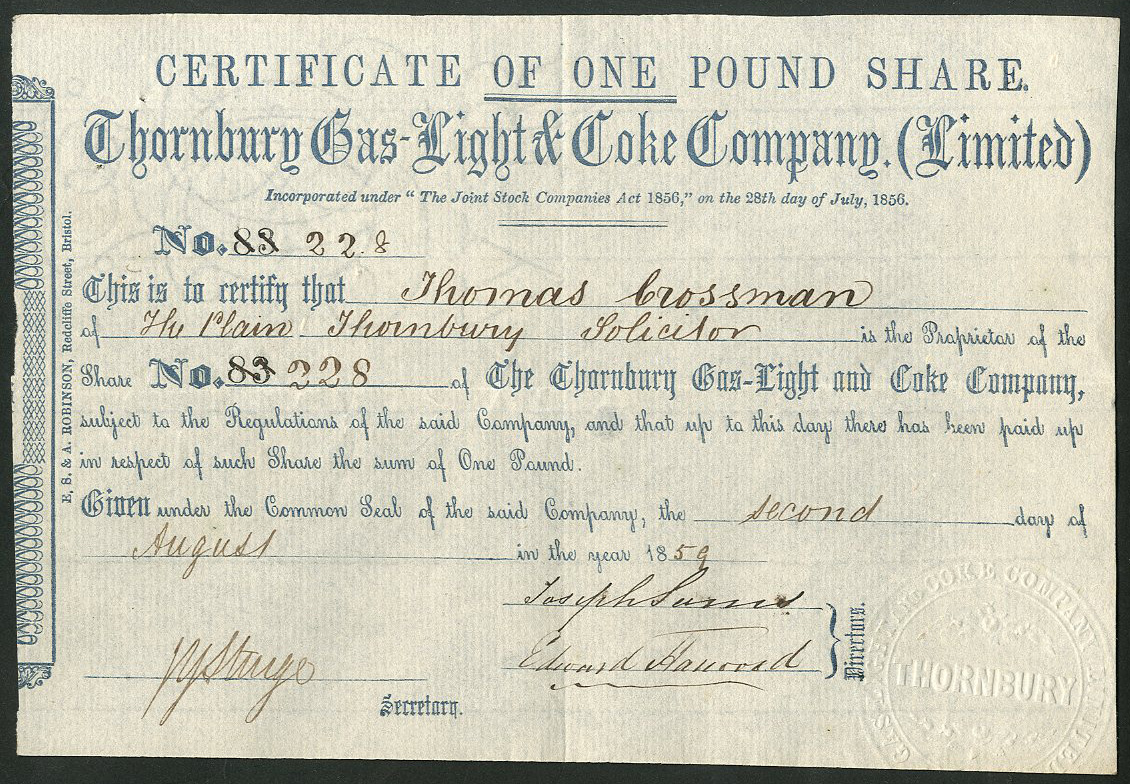 CERTIFICATE OF ONE POUND SHARE.
Thornbury Gas-Light & Coke Company. (Limited)
Incorporated under "The Joint Stock Companies Act 1856," on the 28th day of July, 1856.
No. 83 228
This is to certify that Thomas Crossman
of The Plain Thornbury Solicitor is the Proprietor of the
Share No. 83 228 of The Thornbury Gas-Light and Coke Company,
subject to the Regulations of the said Company, and that up to this day there has been paid up
in respect of such Share the sum of One Pound.
Given under the Common Seal of the said Company, the second day of
August in the year 1859
Joseph
Edward
Directors.
Secretary.
E. S. & A. ROBINSON, Redcliffe Street, Bristol.
COKE COMPANY LIMITED
THORNBURY
GAS